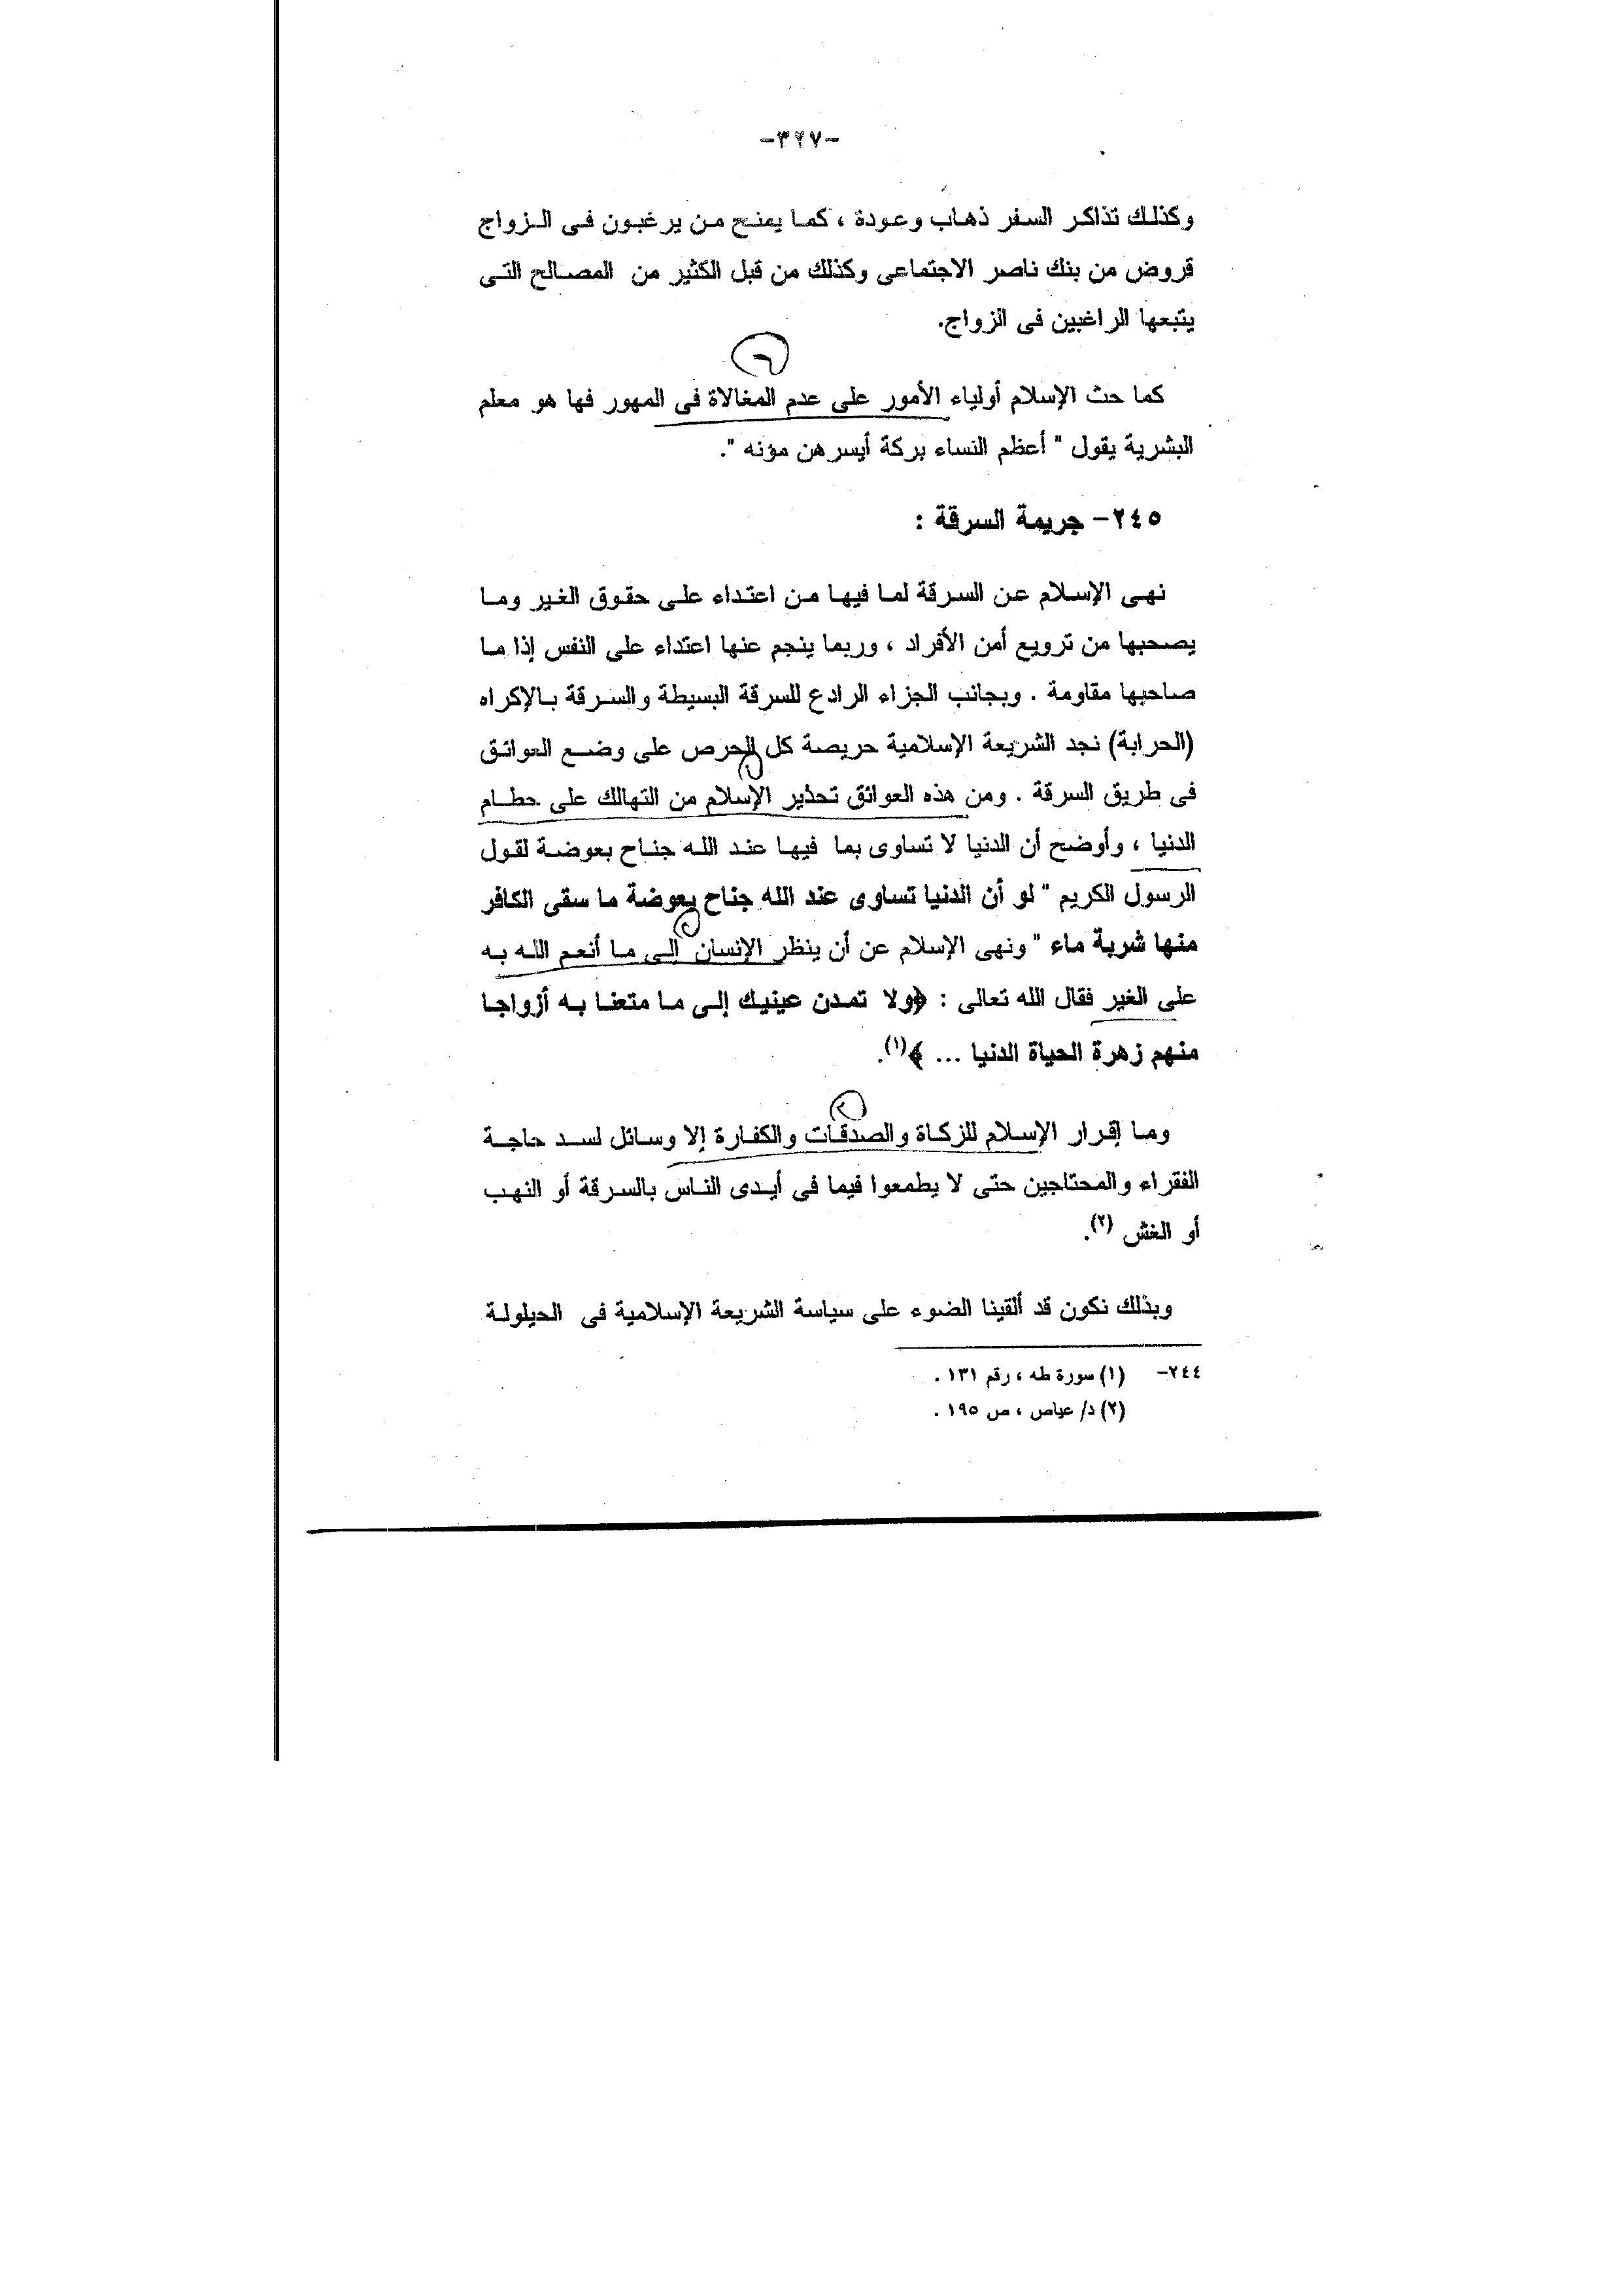 -٣٢٧-
وكذلك تذاكر السفر ذهاب وعودة ، كما يمنح من يرغبون فى الزواج
قروض من بنك ناصر الاجتماعى وكذلك من قبل الكثير من المصالح التى
يتبعها الراغبين فى الزواج.
كما حث الإسلام أولياء الأمور على عدم المغالاة فى المهور فها هو معلم
البشرية يقول " أعظم النساء بركة أيسرهن مؤنه ".
٢٤٥- جريمة السرقة :
نهى الإسلام عن السرقة لما فيها من اعتداء على حقوق الغير وما
يصحبها من ترويع أمن الأفراد ، وربما ينجم عنها اعتداء على النفس إذا ما
صاحبها مقاومة . وبجانب الجزاء الرادع للسرقة البسيطة والسرقة بالإكراه
(الحرابة) نجد الشريعة الإسلامية حريصة كل الحرص على وضع العوائق
فى طريق السرقة . ومن هذه العوائق تحذير الإسلام من التهالك على حطام
الدنيا ، وأوضح أن الدنيا لا تساوى بما فيها عند الله جناح بعوضة لقول
الرسول الكريم " لو أن الدنيا تساوى عند الله جناح بعوضة ما سقى الكافر
منها شربة ماء " ونهى الإسلام عن أن ينظر الإنسان إلى ما أنعم الله به
على الغير فقال الله تعالى : ﴿ولا تمدن عينيك إلى ما متعنا به أزواجا
منهم زهرة الحياة الدنيا ... ﴾(١).
وما إقرار الإسلام للزكاة والصدقات والكفارة إلا وسائل لسد حاجة
الفقراء والمحتاجين حتى لا يطمعوا فيما فى أيدى الناس بالسرقة أو النهب
أو الغش (٢).
وبذلك نكون قد ألقينا الضوء على سياسة الشريعة الإسلامية فى الحيلولة
٢٤٤- (١) سورة طه ، رقم ١٣١ .
(٢) د/ عياص ، ص ١٩٥ .